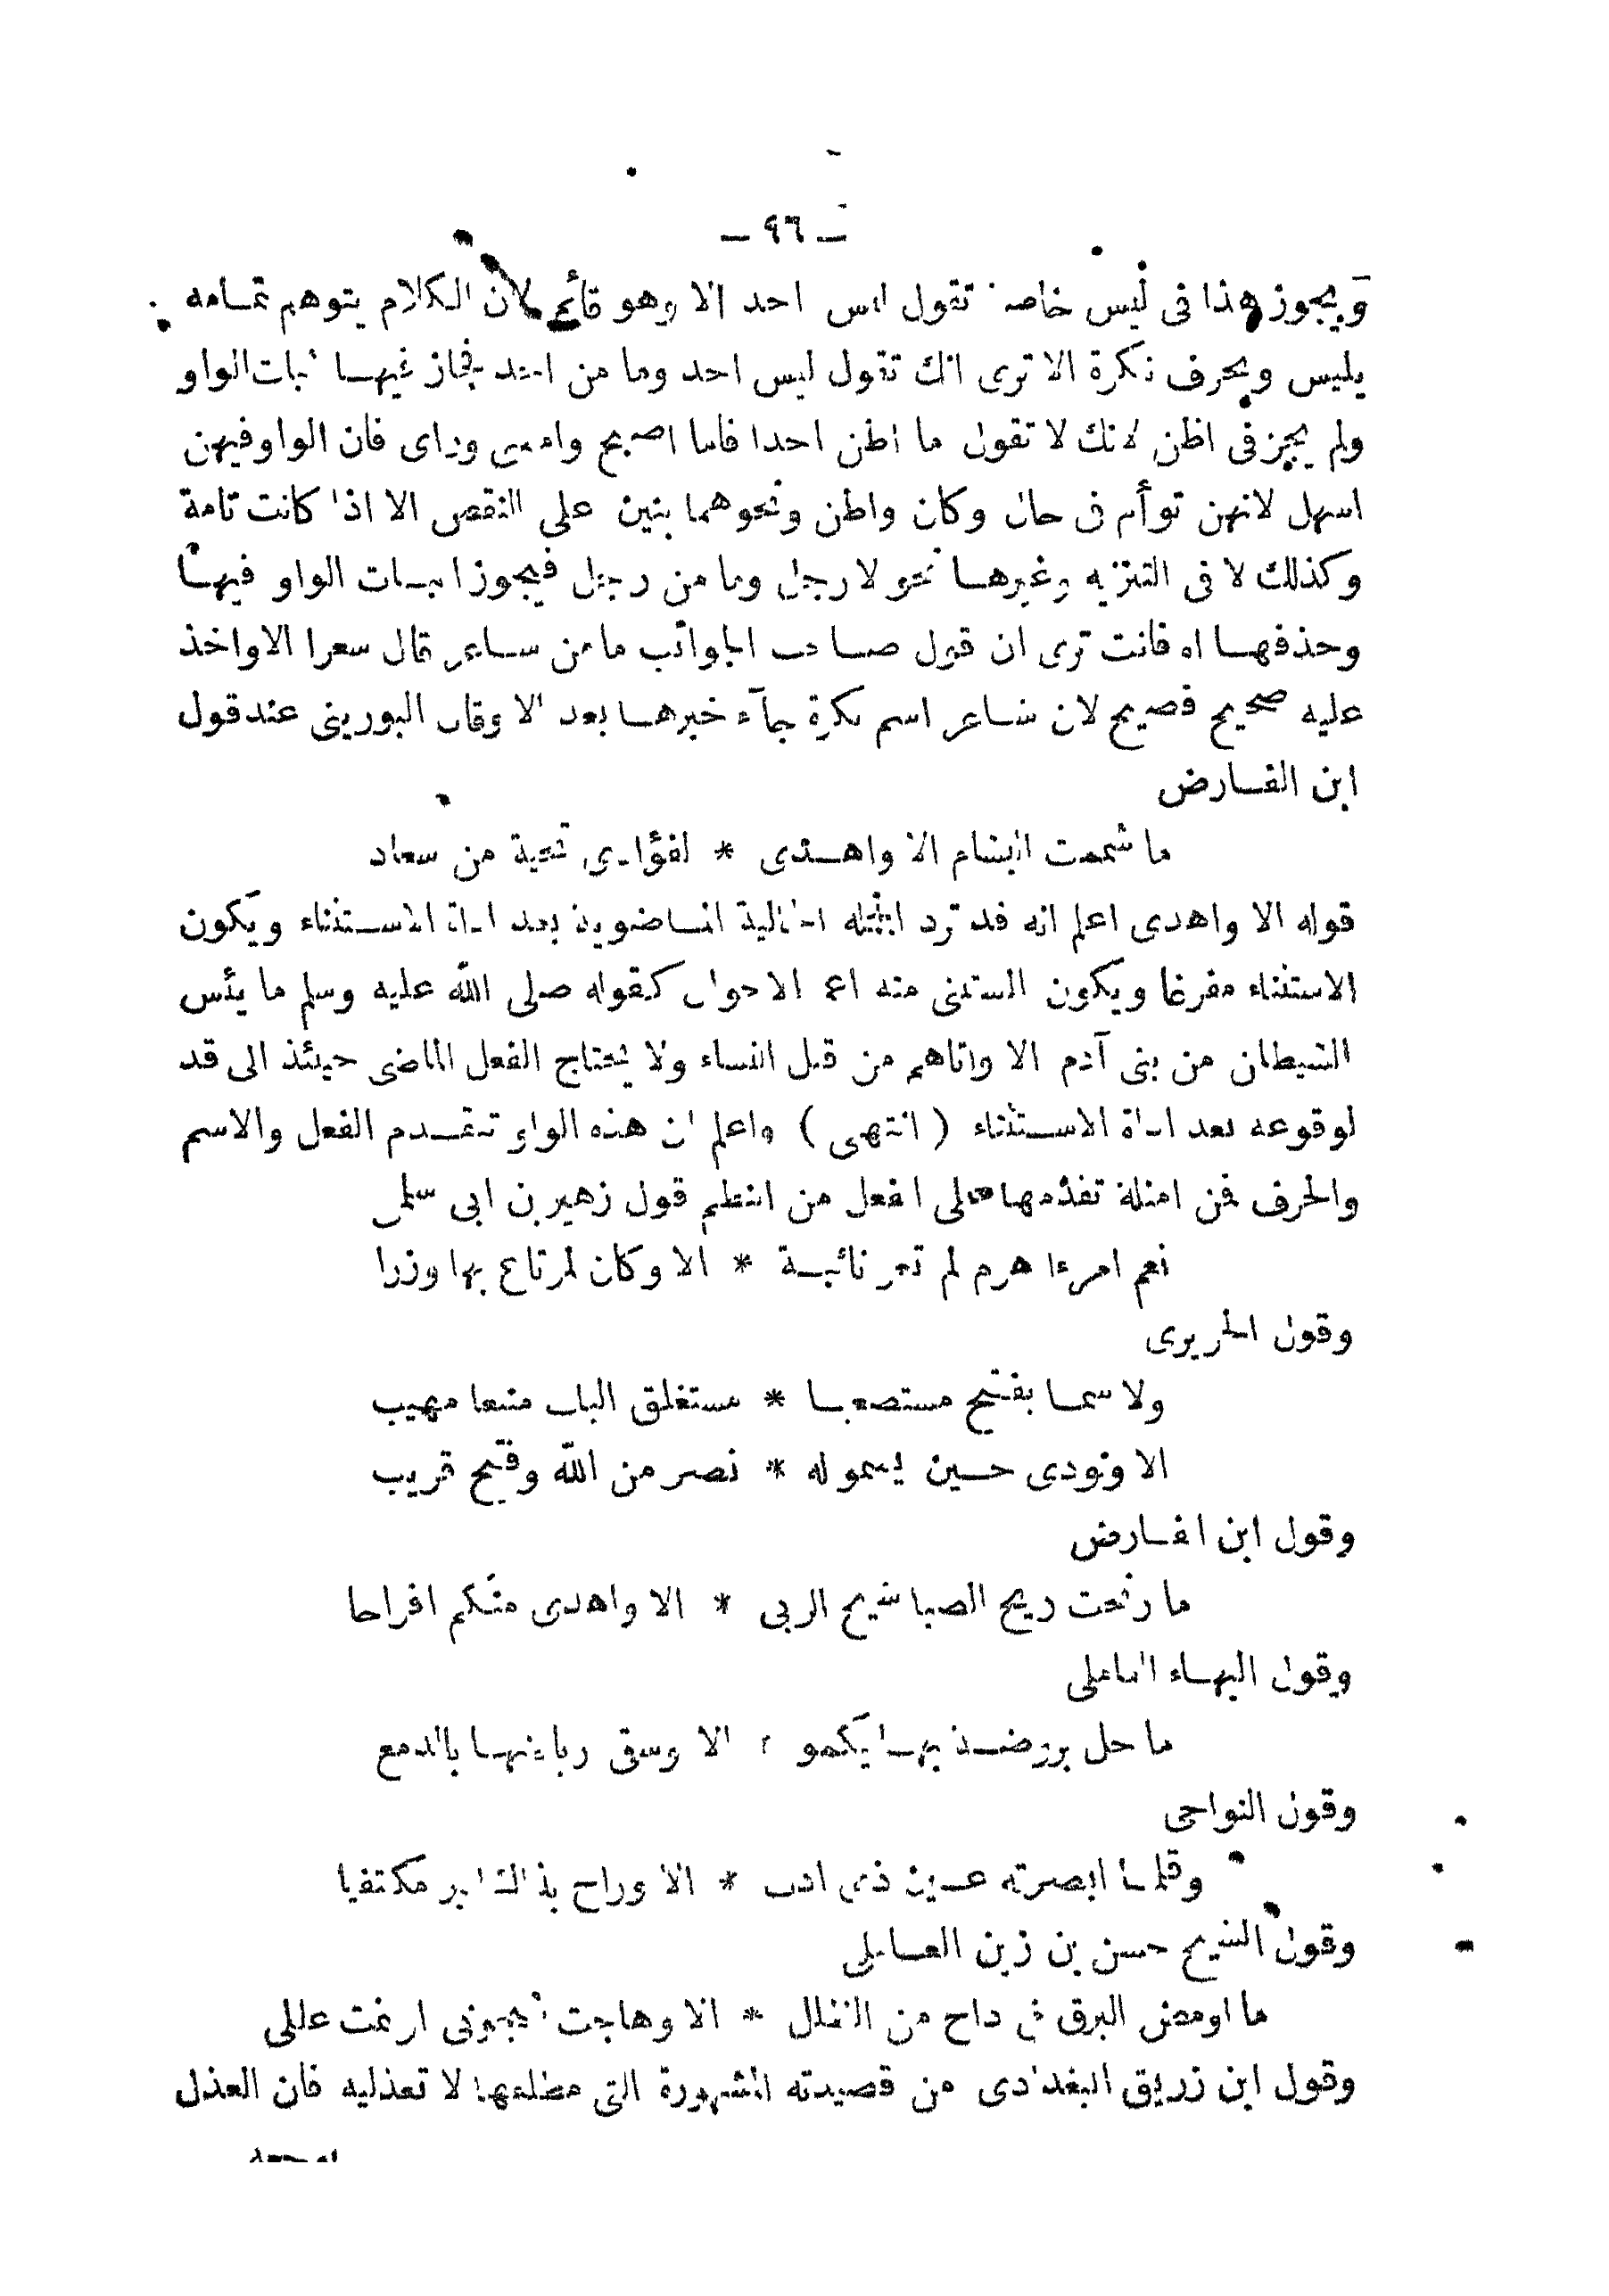 ـ ٩٦ ـ
ويجوز هذا فى ليس خاصة تقول ليس احد الا وهو قائم لان الكلام يتوهم تمـامه
بليس وبحرف نكرة الا ترى انك تقول ليس احد وما من احد فجاز فيهـا اثبات الواو
ولم يجز فى اظن لانك لا تقول ما اظن احدا فاما اصبح وامسى وراى فان الواو فيهن
اسهل لانهن توأم فى حال وكان واظن ونحوهما بنين على النقص الا اذا كانت تامة
وكذلك لا فى التنزيه وغيرهـا نحو لا رجل وما من رجل فيجوز اثبـات الواو فيهـا
وحذفهـا اه فانت ترى ان قول صـاحب الجوائب ما من شـاعر قال شعرا الا واخذ
عليه صحيح فصيح لان شـاعر اسم نكرة جآء خبرهـا بعد الا وقال البورينى عند قول
ابن الفـارض
ما شممت البشام الا واهـدى * لفؤادى تحية من سعاد
قوله الا واهدى اعلم انه قد ترد الجملة الحالية المـاضوية بعد اداة الاسـتثناء ويكون
الاستثناء مفرغا ويكون المستثنى منه اعم الاحوال كقوله صلى الله عليه وسلم ما يئس
الشيطان من بنى آدم الا واتاهم من قبل النساء ولا يحتاج الفعل الماضى حينئذ الى قد
لوقوعه بعد اداة الاسـتثناء ( انتهى ) واعلم ان هذه الواو تتقـدم الفعل والاسم
والحرف فمن امثلة تقدمهـا على الفعل من النظم قول زهير بن ابى سلمى
نعم امرءا هرم لم تعر نائبـة * الا وكان لمرتاع بها وزرا
وقول الحريرى
ولا سمـا بفتح مستصعبـا * مستغلق الباب منيعا مهيب
الا ونودى حـين يسمو له * نصر من الله وفتح قريب
وقول ابن الفـارض
ما رنحت ريح الصبا شيح الربى * الا واهدى منكم افراحا
وقول البهـاء العاملى
ما حل بروضـة بهـا يكمو * الا وسقى رياضهـا بالدمع
وقول النواجى
وقلمـا ابصرته عـين ذى ادب * الا وراح بذاك مكتفيا
وقول الشيخ حسن بن زين العـاملى
ما اومض البرق فى داج من الظلل * الا وهاجت شجونى ارنمت عللى
وقول ابن زريق البغدادى من قصيدته المشهورة التى مطلعها لا تعذليه فان العذل